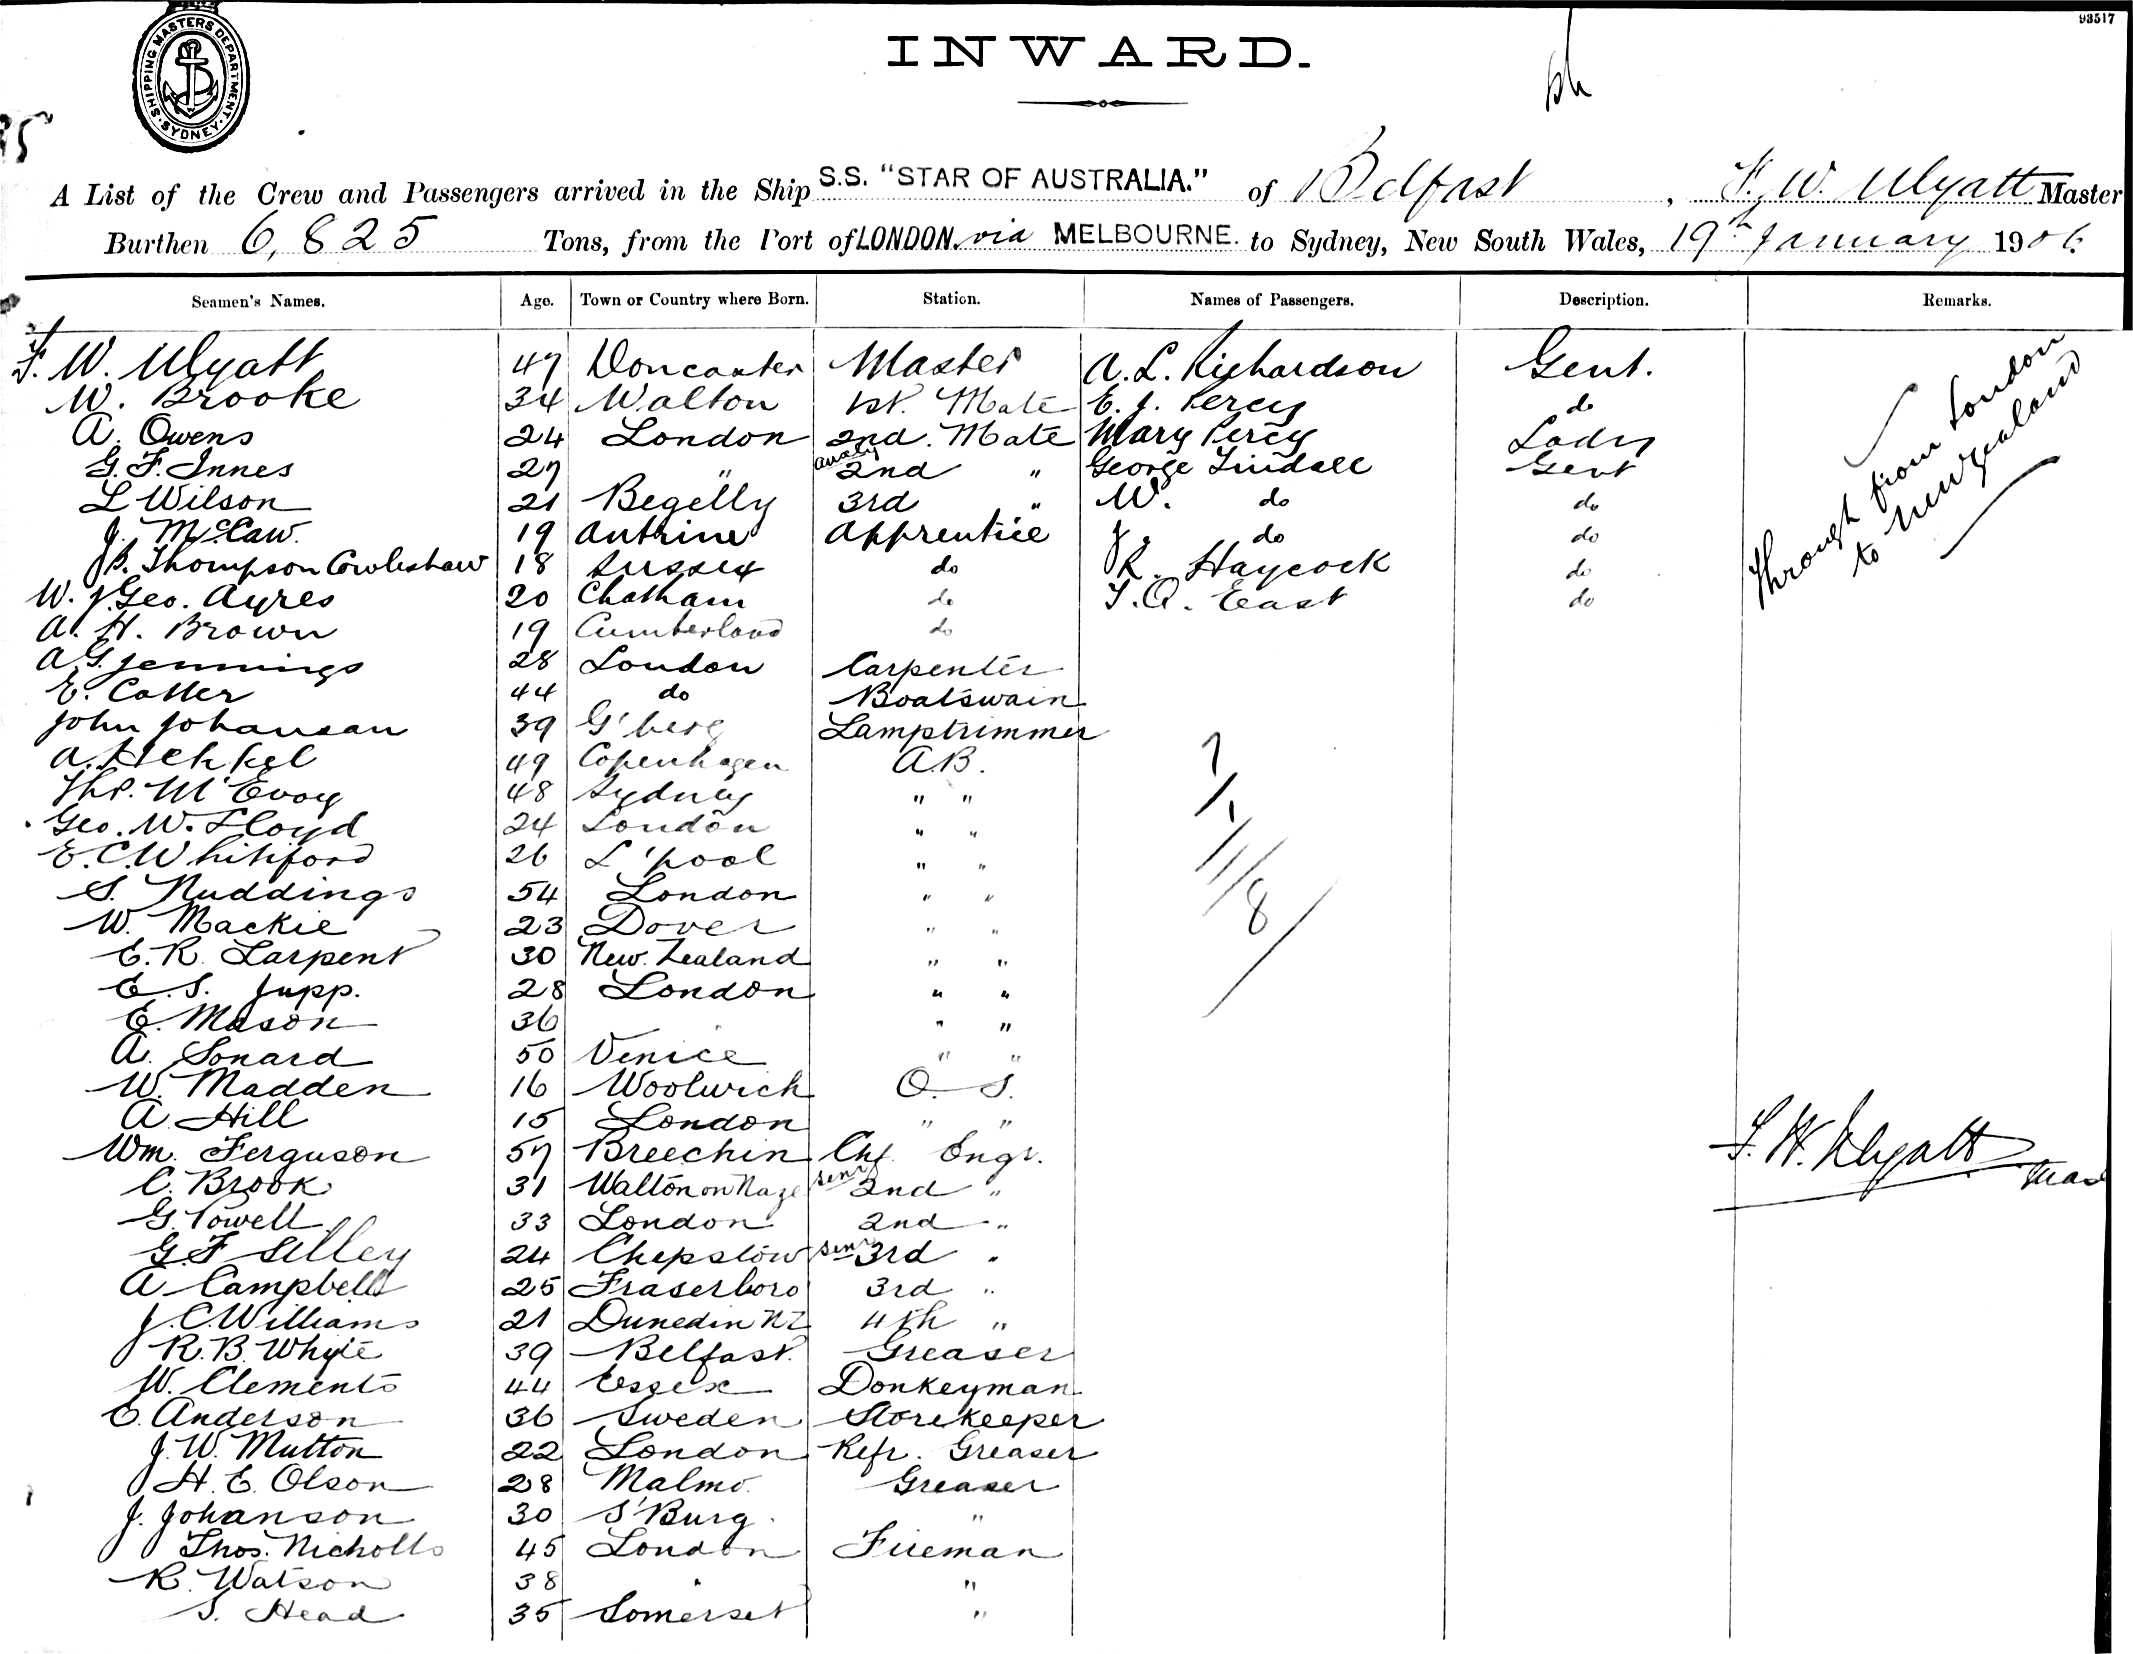 93517
SHIPPING MASTERS DEPARTMENT. SYDNEY.
INWARD.
A List of the Crew and Passengers arrived in the Ship S.S. "STAR OF AUSTRALIA." of Belfast, F. W. Wyatt Master
Burthen 6,825 Tons, from the Port of LONDON. via MELBOURNE. to Sydney, New South Wales, 19th January 1906.
Seamen's Names. Age. Town or Country where Born. Station. Names of Passengers. Description. Remarks.
F. W. Wyatt 47 Doncaster Master A. L. Richardson Gent.
W. Brooke 34 Walton 1st. Mate E. J. Percy do
A. Owens 24 London 2nd. Mate Mary Percy Lady
G. F. Innes 27 " auxly 2nd " George Tindall Gent
L Wilson 21 Begelly 3rd " W. do do
J. McCaw. 19 Antrim Apprentice J. do do
B. Thompson Cowleshaw 18 Sussex do R. Haycock do
W. J. Geo. Ayres 20 Chatham do T. A. East do
Through from London to New Zealand
A. H. Brown 19 Cumberland do
A. G. Jennings 28 London Carpenter
E. Cotter 44 do Boatswain
John Johansan 39 G'berg Lamptrimmer
A. Henkel 49 Copenhagen A.B.
Tho. McEvoy 48 Sydney " "
Geo. W. Lloyd 24 London " "
E. C. Whitiford 26 L'pool " "
S. Nuddings 54 London " "
W. Mackie 23 Dover " "
E. R. Larpent 30 New. Zealand " "
E. S. Jupp. 28 London " "
E. Mason 36 " " "
A. Sonard 50 Venice " "
W. Madden 16 Woolwich O. S.
A. Hill 15 London " "
Wm. Ferguson 57 Breechin Chf. Engr.
C. Brook 31 Walton on Naze Senr 2nd "
G. Powell 33 London 2nd "
G. F Silley 24 Chepstow Senr 3rd "
A Campbell 25 Fraserboro 3rd "
J. C. Williams 21 Dunedin NZ 4th "
R. B. Whyte 39 Belfast. Greaser
W. Clements 44 Essex Donkeyman
E. Anderson 36 Sweden Storekeeper
J. W. Mutton 22 London Refr. Greaser
H. E. Olson 28 Malmo. Greaser
J. Johanson 30 S'Burg. "
Thos. Nicholls 45 London Fireman
R. Watson 38 " "
S. Head 35 Somerset "
7
1
11
8
F. W. Wyatt